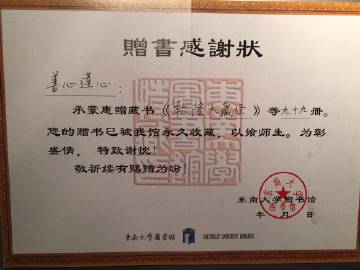 贈書感謝狀
善心達心：
承蒙惠赠藏书《乾隆大藏经》等九十九册。
您的赠书已被我馆永久收藏，以飨师生。为彰
盛情，特致谢忱！
敬祈续有赐赠为盼！
东南大学图书馆
年 月 日
東南大學圖書館 SOUTHEAST UNIVERSITY LIBRARIES